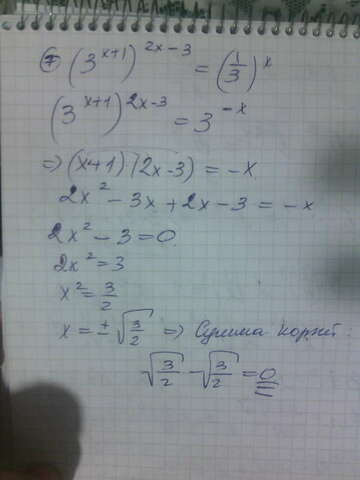 7 (3^{x+1})^{2x-3} = (1/3)^x
(3^{x+1})^{2x-3} = 3^{-x}
=> (x+1)·(2x-3) = -x
2x² - 3x + 2x - 3 = -x
2x² - 3 = 0
2x² = 3
x² = 3/2
x = ± √(3/2) => Сумма корней:
√(3/2) - √(3/2) = 0